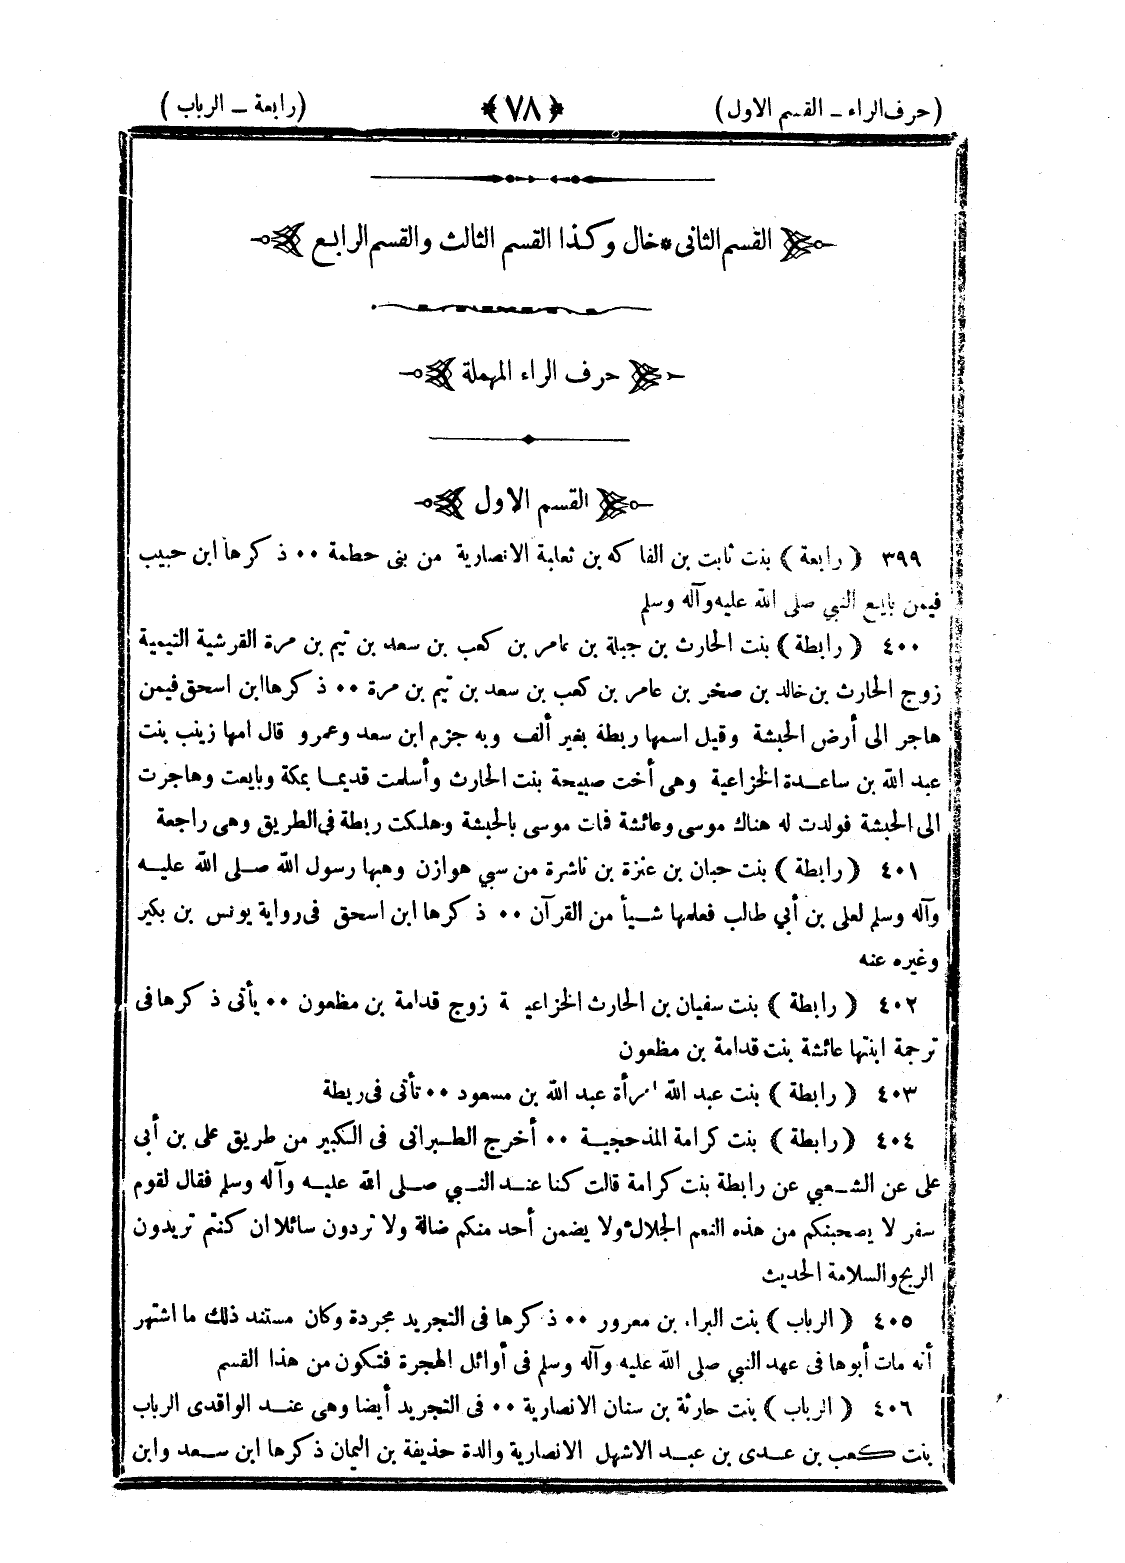 (حرف الراء ـ القسم الاول) ﴿٧٨﴾ (رابعة ـ الرباب)
القسم الثانى * خال وكذا القسم الثالث والقسم الرابع
حرف الراء المهملة
القسم الاول
٣٩٩ ( رابعة ) بنت ثابت بن الفاكه بن ثعلبة الانصارية من بنى خطمة ٠٠ ذكرها ابن حبيب
فيمن بايع النبي صلى الله عليه وآله وسلم
٤٠٠ ( رابطة ) بنت الحارث بن جبلة بن عامر بن كعب بن سعد بن تيم بن مرة القرشية التيمية
زوج الحارث بن خالد بن صخر بن عامر بن كعب بن سعد بن تيم بن مرة ٠٠ ذكرها ابن اسحق فيمن
هاجر الى أرض الحبشة وقيل اسمها ريطة بغير ألف وبه جزم ابن سعد وعمرو قال امها زينب بنت
عبد الله بن ساعدة الخزاعية وهى أخت صبيحة بنت الحارث وأسلمت قديما بمكة وبايعت وهاجرت
الى الحبشة فولدت له هناك موسى وعائشة فمات موسى بالحبشة وهلكت ريطة فى الطريق وهى راجعة
٤٠١ ( رابطة ) بنت حبان بن عنزة بن ناشرة من سبي هوازن وهبها رسول الله صلى الله عليه
وآله وسلم لعلى بن أبي طالب فعلمها شيأ من القرآن ٠٠ ذكرها ابن اسحق فى رواية يونس بن بكير
وغيره عنه
٤٠٢ ( رابطة ) بنت سفيان بن الحارث الخزاعية زوج قدامة بن مظعون ٠٠ يأتى ذكرها فى
ترجمة ابنتها عائشة بنت قدامة بن مظعون
٤٠٣ ( رابطة ) بنت عبد الله امرأة عبد الله بن مسعود ٠٠ تأتى فى ريطة
٤٠٤ ( رابطة ) بنت كرامة المذحجية ٠٠ أخرج الطبرانى فى الكبير من طريق على بن أبى
على عن الشعبي عن رابطة بنت كرامة قالت كنا عند النبي صلى الله عليه وآله وسلم فقال لقوم
سفر لا يصحبنكم من هذه النعم الجلال ولا يضمن أحد منكم ضالة ولا تردون سائلا ان كنتم تريدون
الربح والسلامة الحديث
٤٠٥ ( الرباب ) بنت البراء بن معرور ٠٠ ذكرها فى التجريد مجردة وكان مستند ذلك ما اشتهر
أنه مات أبوها فى عهد النبي صلى الله عليه وآله وسلم فى أوائل الهجرة فتكون من هذا القسم
٤٠٦ ( الرباب ) بنت حارثة بن سنان الانصارية ٠٠ فى التجريد أيضا وهى عند الواقدى الرباب
بنت كعب بن عدى بن عبد الاشهل الانصارية والدة حذيفة بن اليمان ذكرها ابن سعد وابن